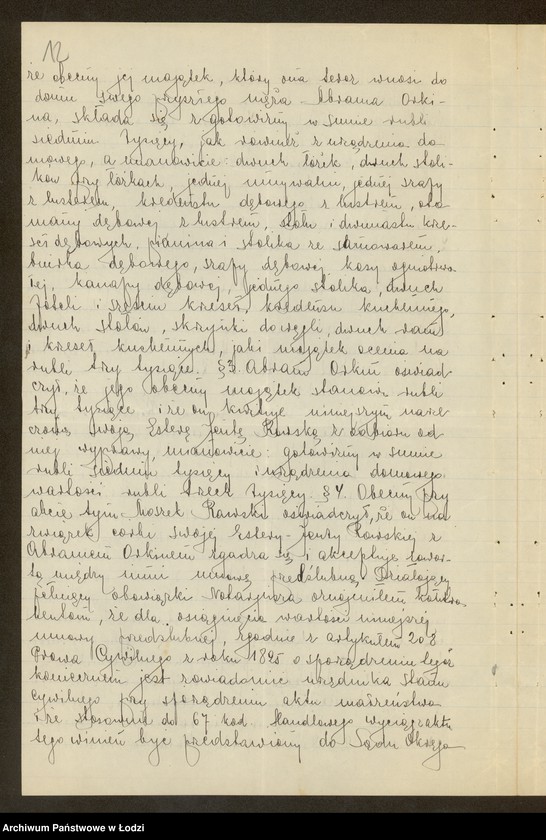 12
że obecny jej majątek, który ona teraz wnosi do
domu swego przyszłego męża Abrama Orki-
na, składa się z gotowizny w sumie rubli
siedmiu tysięcy, jak również z urządzenia do-
mowego, a mianowicie: dwuch łóżek, dwuch stoli-
ków przy łóżkach, jednej umywalni, jednej szafy
z lustrem, kredensu dębowego z lustrem, oto-
many dębowej z lustrem, stołu i dwunastu krze-
seł dębowych, pianina i stolika ze samowarem,
biurka dębowego, szafy dębowej, kasy ogniotrwa-
łej, kanapy dębowej, jednego stolika, dwuch
foteli i sześciu krzeseł, kredensu kuchennego,
dwuch stołów, skrzynki do węgli, dwuch
i krzeseł kuchennych, jaki majątek ocenia na
rubli trzy tysiące. §3. Abram Orkin oświad-
czył, że jego obecny majątek stanowi rubli
trzy tysiące i że on kwituje niniejszym narze-
czoną swoją Esterę Jentę Rawską z odbioru od
niej wyprawy, mianowicie: gotowizny w sumie
rubli siedmiu tysięcy i urządzenia domowego
wartości rubli trzech tysięcy. §4. Obecny przy
akcie tym Moszek Rawski oświadczył, że on na
związek córki swojej Estery-Jenty Rawskiej z
Abramem Orkinem zgadza się i akceptuje zawar-
tą między nimi umowę przedślubną. Działający
pełniący obowiązki Notaryusza oznajmiłem kontra-
hentom, że dla osiągnięcia wartości niniejszej
umowy przedślubnej, zgodnie z artykułem 208
Prawa Cywilnego z roku 1825 o sporządzeniu tejże
koniecznem jest zawiadomienie urzędnika stanu
cywilnego przy sporządzeniu aktu małżeństwa
i że stosownie do 67 kod. Handlowego wyciąg aktu
tego winien być przedstawiony do Sądu Okręgo
Archiwum Państwowe w Łodzi